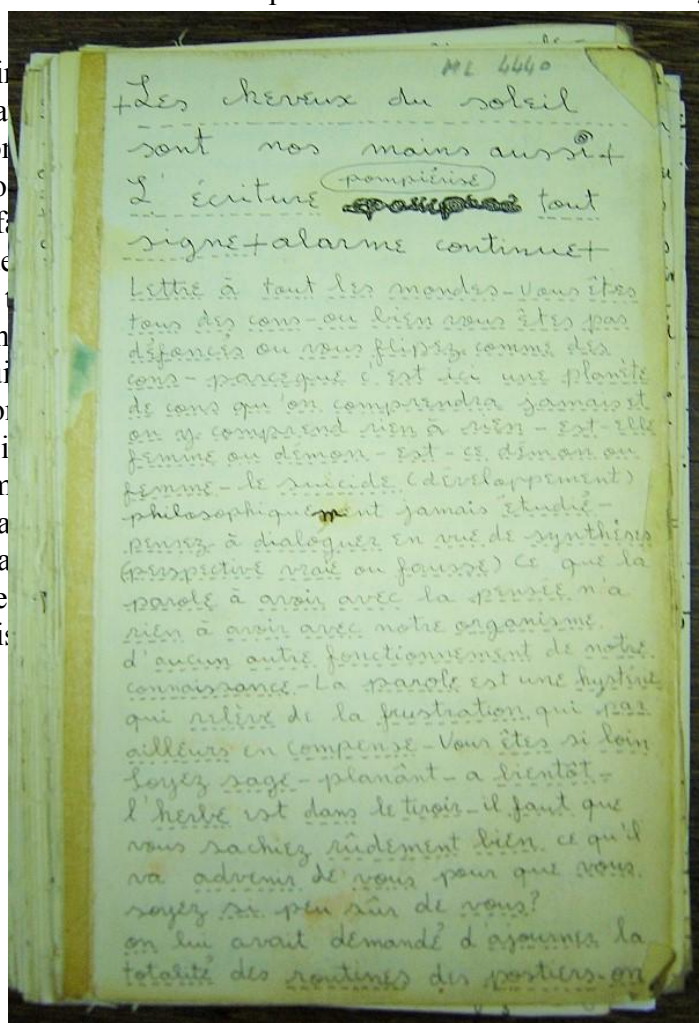 ML 4440
+Les cheveux du soleil
sont nos mains aussi+
pompiérise
L'écriture tout
signe+alarme continue+
Lettre à tout les mondes-Vous êtes
tous des cons-ou bien vous êtes pas
défoncés ou vous flipez comme des
cons-parceque c'est ici une planète
de cons qu'on comprendra jamais et
on y comprend rien à rien-est-elle
femme ou démon-est-ce démon ou
femme-le suicide (développement)
philosophiquement jamais étudié-
pensez à dialoguer en vue de synthèses
(perspective vraie ou fausse) Ce que la
parole à avoir avec la pensée n'a
rien à avoir avec notre organisme
d'aucun autre fonctionnement de notre
connaissance-La parole est une hystérie
qui relève de la frustration qui par
ailleurs en compense-Vous êtes si loin
soyez sage-planant-a bientôt-
l'herbe est dans le tiroir-il faut que
vous sachiez rûdement bien ce qu'il
va advenir de vous pour que vous
soyez si peu sûr de vous?
on lui avait demandé d'ajourner la
totalité des routines des postiers-on